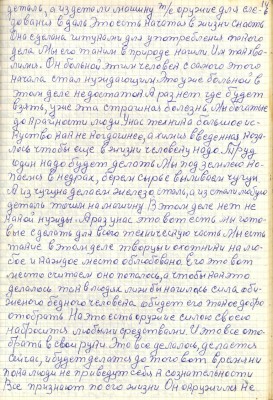 деталь, а из детали машину т/е оружие для сле-
дования в даль Это есть начатая в жизни снасть
Она сделана штучами для употребления такого
дела Мы его таким в природе нашли Им так хва-
лимся. Он больной этим человек с самого этого
начала стал нуждающим Это уже больной в
этом деле недостаток А раз нет где будет
взять, уже эта страшная болезнь. Мы богатые
до крайности люди. У нас техника большое ис-
куство как не когдашнее, а химия введенная кода-
лось чтобы еще в жизни человеку надо. Труд
один надо будет делать. Мы под землею ко-
паемся в недрах, берем сырье выливаем чугун
А из чугуна делаем железо сталь, а из стали любую
деталь точим на машину В этом деле нет не
какой нужды. А раз у нас это вот есть мы гото-
вые сделать для всего техническую часть. Мы есть
такие в этом деле творцы и охотники на лю-
бое и каждое место облюбовано Его это вот
место считаем оно попалось, а чтобы как это
делалось так в людях или бы нашлось сила оби-
женого бедного человека обидеть его такое добро
отобрать. На это есть оружие силою своею
набросится любыми средствами. И это все ото-
брать в свои руки. Это все делалось, делается
сейчас, и будет делатся до того вот времени
пока люди не приведут себя к сознательности
Все признают по его жизни. Он окружился не